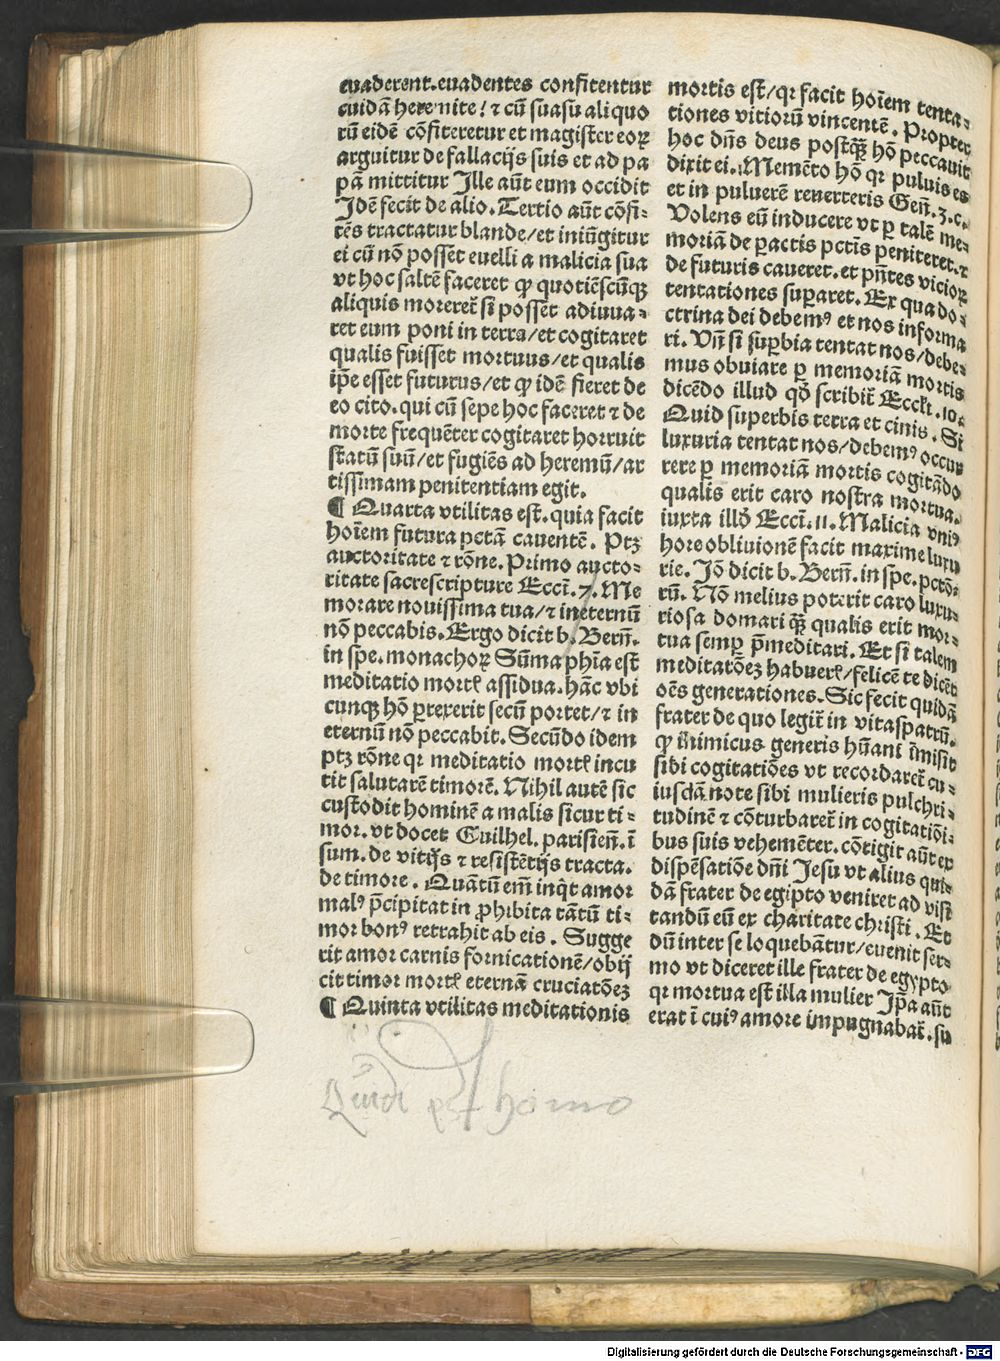 euaderent. euadentes confitentur
cuidā heremite! ⁊ cū suasu aliquo
rū eidē cōfiteretur et magister eoꝝ
arguitur de fallacijs suis et ad pa
pā mittitur Ille aūt eum occidit
Idē fecit de alio. Tertio aūt cōfi-
tēs tractatur blande/et iniūgitur
ei cū nō posset euelli a malicia sua
vt hoc saltē faceret ꝙ quotiēscūqꝫ
aliquis morereť si posset adiuua-
ret eum poni in terra/et cogitaret
qualis fuisset mortuus/et qualis
ip̄e esset futurus/et ꝙ idē fieret de
eo cito. qui cū sepe hoc faceret ⁊ de
morte frequēter cogitaret horruit
statū suū/et fugiēs ad heremū/ar
tissimam penitentiam egit.
¶ Quarta vtilitas est. quia facit
hoīem futura pctā cauentē. Ptꝫ
auctoritate ⁊ rōne. Primo aucto-
ritate sacrescripture Eccī. 7. Me
morare nouissima tua/⁊ ineternū
nō peccabis. Ergo dicit b. Berń.
in spe. monachoꝝ Sūma phīa est
meditatio mortꝭ assidua. hāc vbi
cunqꝫ hō ꝑrexerit secū portet/⁊ in
eternū nō peccabit. Secūdo idem
ptꝫ rōne qꝛ meditatio mortꝭ incu
tit salutarē timorē. Nihil autē sic
custodit hominē a malis sicut ti-
mor. vt docet Guilhel. parisień. ī
sum. de vitijs ⁊ resistētijs tracta.
de timore. Quātū em̄ inq̇t amor
malꝰ p̄cipitat in ꝓhibita tātū ti-
mor bonꝰ retrahit ab eis. Sugge
rit amor carnis fornicationē/obij
cit timor mortꝭ eternā cruciatōeꝫ
¶ Quinta vtilitas meditationis
mortis est/qꝛ facit hoīem tenta-
tiones vitiorū vincentē. Propter
hoc dn̄s deus postqꝫ̄ hō peccauit
dixit ei. Memēto hō qꝛ puluis es
et in puluerē reuerteris Geń. 3. c.
Volens eū inducere vt ꝑ talē me-
moriā de ꝑactis pctīs peniteret. ⁊
de futuris caueret. et pn̄tes vicioꝝ
tentationes suꝑaret. Ex qua do-
ctrina dei debemꝰ et nos informa
ri. Vn̄ si suꝑbia tentat nos/debe-
mus obuiare ꝑ memoriā mortis
dicēdo illud qō scribiť Eccłi. 10.
Quid superbis terra et cinis. Si
luxuria tentat nos/debemꝰ occur
rere ꝑ memoriā mortis cogitādo
qualis erit caro nostra mortua.
iuxta illō Eccī. 11. Malicia vniꝰ
hore obliuionē facit maxime luxu
rie. Iō dicit b. Berń. in spe. pctō-
rū. Nō melius poterit caro luxu-
riosa domari qꝫ̄ qualis erit mor-
tua semꝑ p̄meditari. Et si talem
meditatōeꝫ habuerꝭ/felicē te dicēt
oēs generationes. Sic fecit quidā
frater de quo legiť in vitaspatrū.
ꝙ inimicus generis hūani īmisit
sibi cogitatiōes vt recordareť cu-
iusdā note sibi mulieris pulchri-
tudinē ⁊ cōturbareť in cogitatiōi-
bus suis vehemēter. cōtigit aūt ex
dispēsatiōe dn̄i Jesu vt alius qui-
dā frater de egipto veniret ad visi
tandū eū ex charitate christi. Et
dū inter se loquebātur/euenit ser-
mo vt diceret ille frater de egypto
qꝛ mortua est illa mulier Ip̄a aūt
erat ī cuiꝰ amore impugnabaꝛ̄. su
Quidi est homo
Digitalisierung gefördert durch die Deutsche Forschungsgemeinschaft - DFG